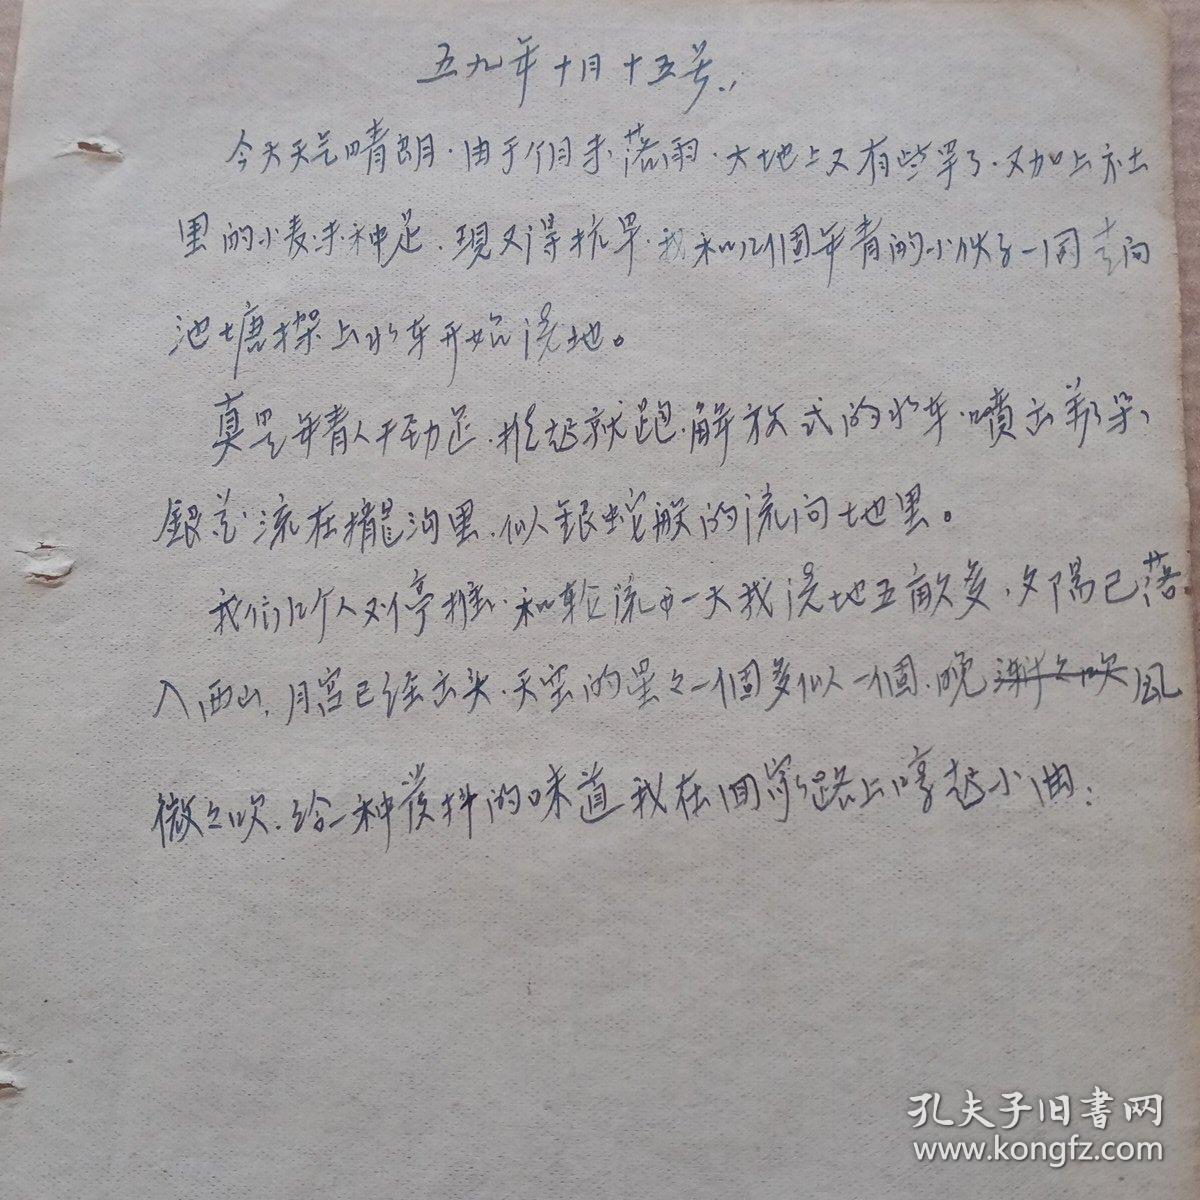 五九年十月十五号
今天天气晴朗.由于个月未落雨.大地上又有些旱了.又加上社
里的小麦未种足.現又得抗旱.我和几個年青的小伙子一同走向
池塘架上水车开始浇地。
真是年青人干劲足.推起就跑.解放式的水车.噴出朵
銀花流在攏沟里.似銀蛇般的流向地里。
我们几个人对停推.和轮流一天我浇地五畝多.夕陽已落
入西山.月宫已经出头.天空的星々一個多似一個.晚风
微々吹.给一种发抖的味道我在回家路上哼起小曲:
孔夫子旧書网
www.kongfz.com